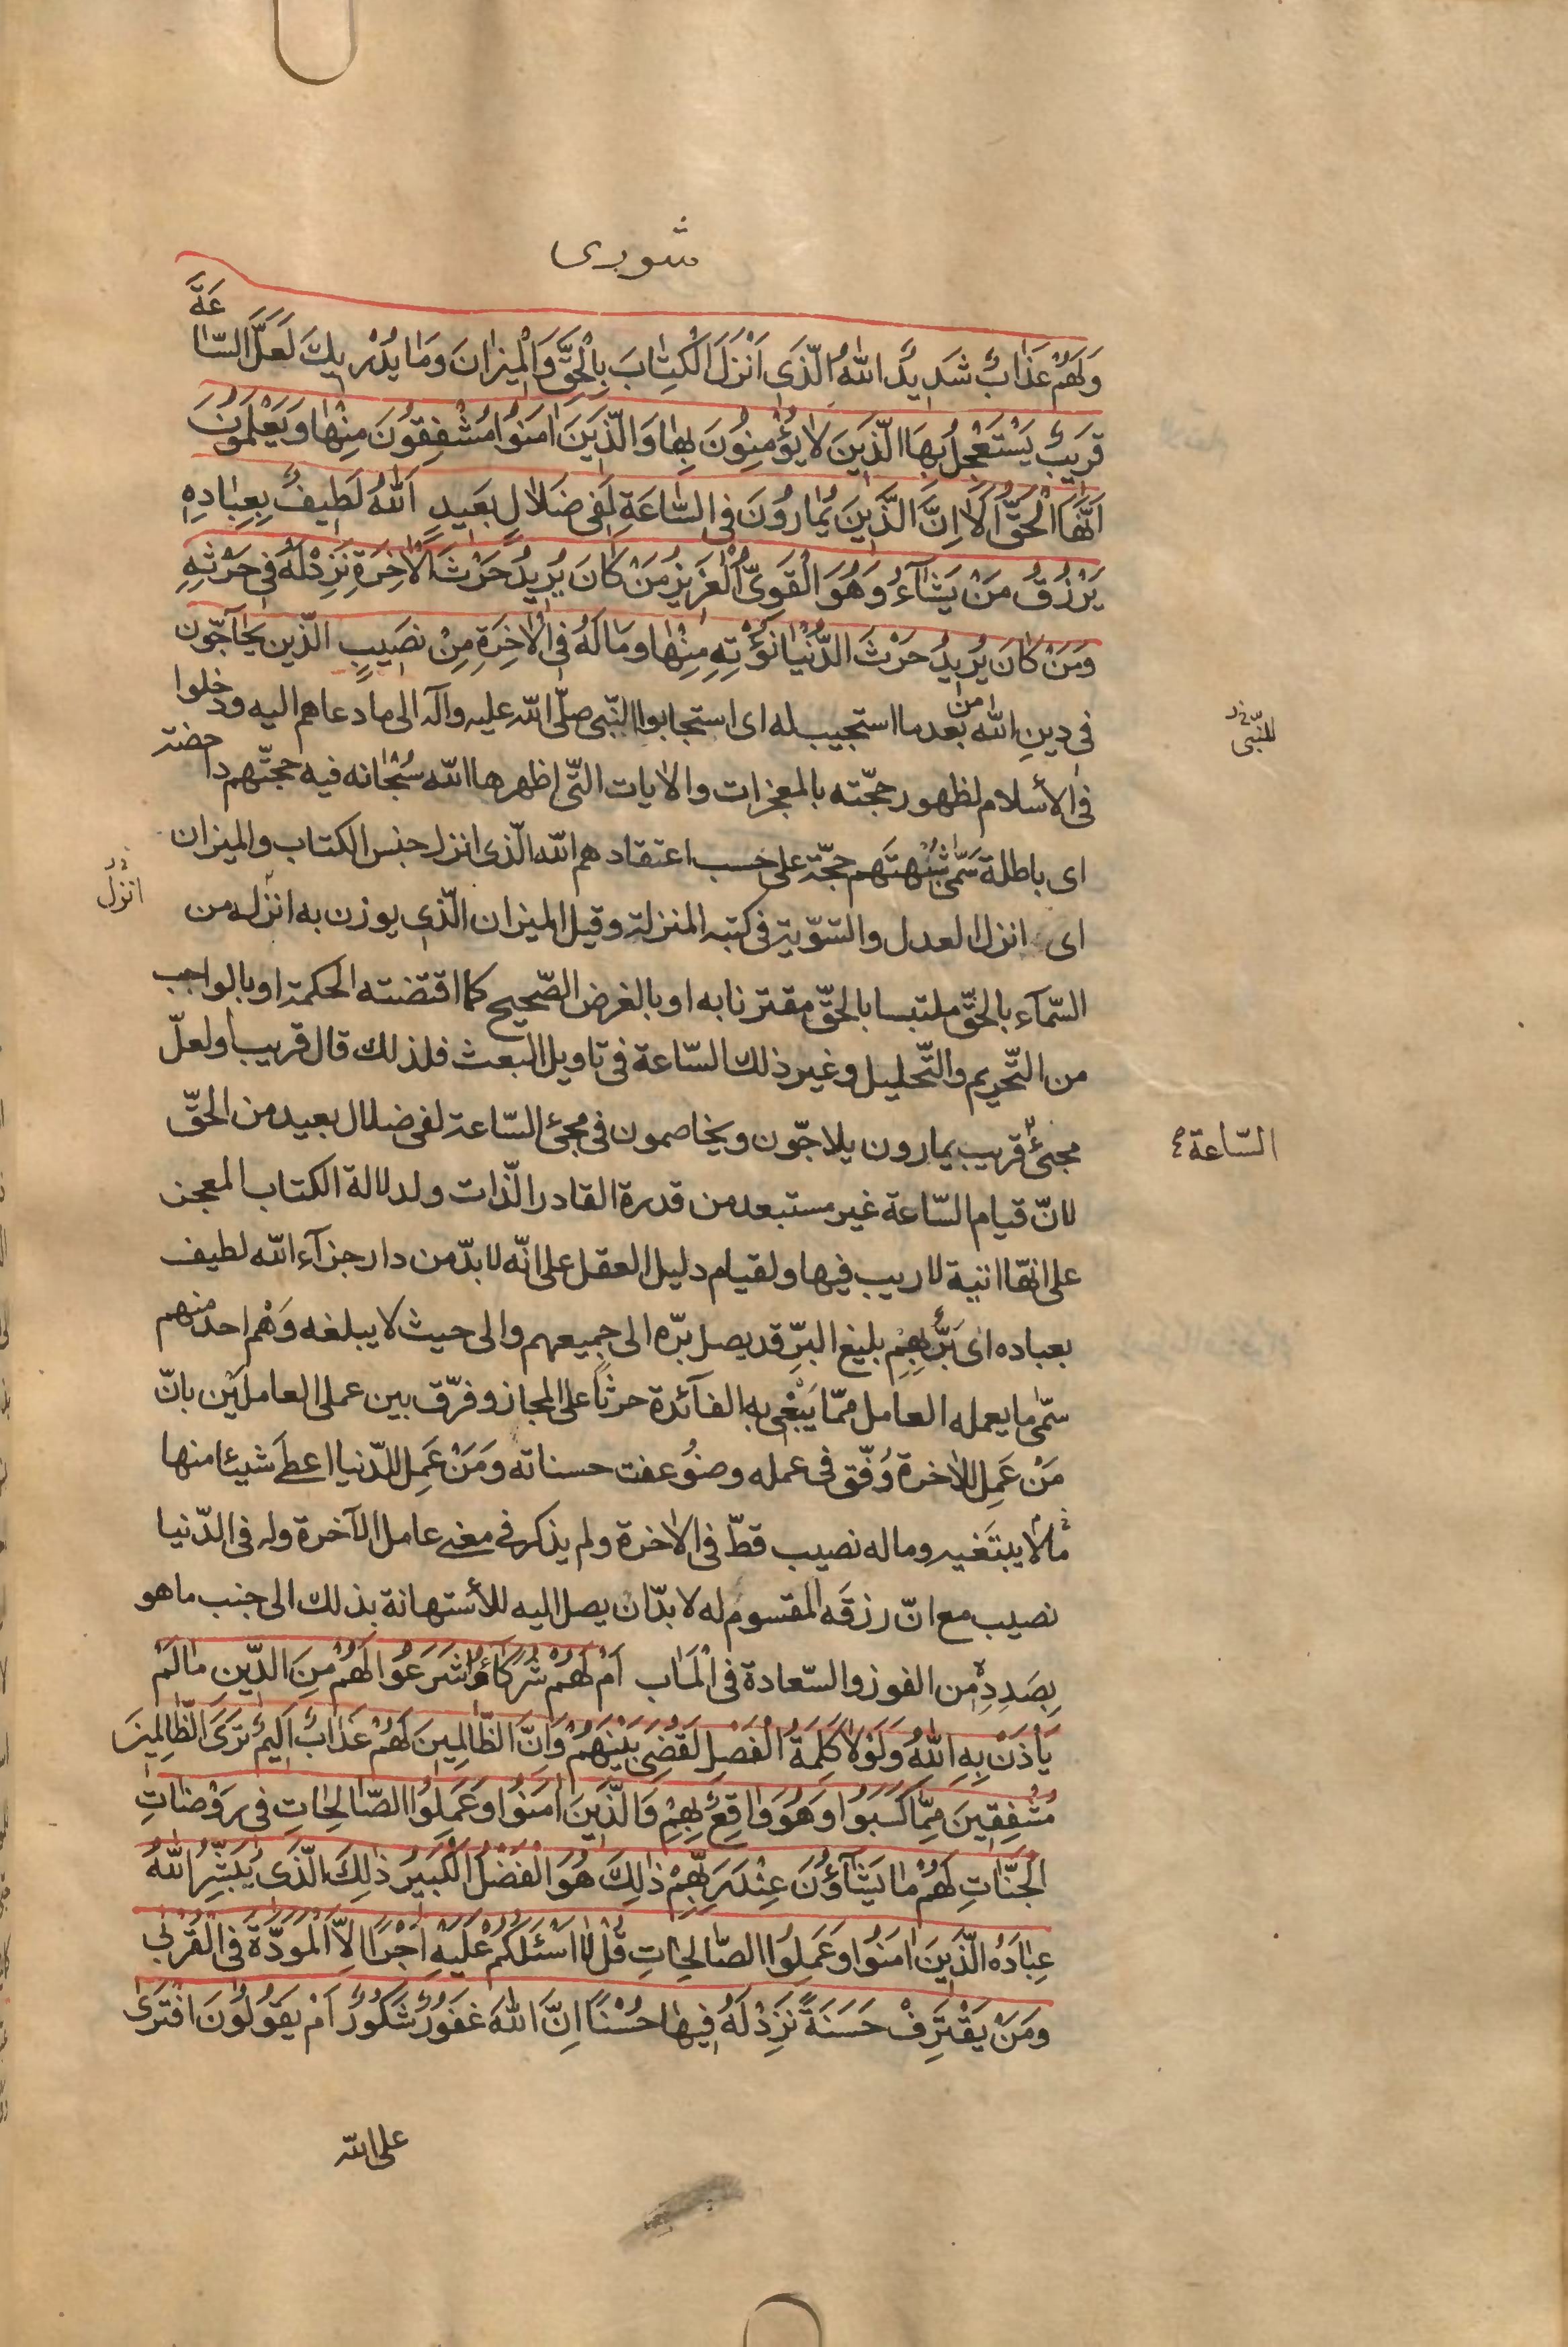 شورى
وَلَهُمْ عَذَابٌ شَدِيدٌ اَللّٰهُ الَّذِي اَنْزَلَ الْكِتَابَ بِالْحَقِّ وَالْمِيزَانَ وَمَا يُدْرِيكَ لَعَلَّ السَّاعَةَ
قَرِيبٌ يَسْتَعْجِلُ بِهَا الَّذِينَ لَا يُؤْمِنُونَ بِهَا وَالَّذِينَ اٰمَنُوا مُشْفِقُونَ مِنْهَا وَيَعْلَمُونَ
اَنَّهَا الْحَقُّ اَلَا اِنَّ الَّذِينَ يُمَارُونَ فِي السَّاعَةِ لَفِي ضَلَالٍ بَعِيدٍ اَللّٰهُ لَطِيفٌ بِعِبَادِهِ
يَرْزُقُ مَنْ يَشَآءُ وَهُوَ الْقَوِيُّ الْعَزِيزُ مَنْ كَانَ يُرِيدُ حَرْثَ الْاٰخِرَةِ نَزِدْ لَهُ فِي حَرْثِهِ
وَمَنْ كَانَ يُرِيدُ حَرْثَ الدُّنْيَا نُؤْتِهِ مِنْهَا وَمَا لَهُ فِي الْاٰخِرَةِ مِنْ نَصِيبٍ الّذين يحآجّون
في دينِ اللّه من بعد ما استجيب له اى استجابوا النّبى صلّى اللّه عليه وآله الى ما دعاهم اليه ودخلوا
للنّبى
فى الأسلام لظهور حجّته بالمعجزات والايات الّتى اظهرها اللّه سبحانه فيه حجّتهم داحضة
اى باطلة سَمّى شُبْهتَهم حجّة على حسب اعتقادهم اللّه الّذى انزل جنس الكتاب والميزان
اى انزل العدل والتسّوية فى كتبه المنزلة وقيل الميزان الّذى يوزن به انزله من
انزل
السّمآء بالحقّ ملتبسا بالحقّ مقترنا به او بالغرض الصّحيح كما اقتضته الحكمة او بالواجب
من التّحريم والتّحليل وغير ذلك السّاعة فى تاويل البعث فلذلك قال قريب او لعلّ
مجئ قريب يمارون يلاجّون ويخاصمون فى مجئ السّاعة لفى ضلال بعيد من الحقّ
السّاعة
لانّ قيام السّاعة غير مستبعد من قدرة القادر الذّات ولدلالة الكتاب المعجز
على انّها اتية لا ريب فيها ولقيام دليل العقل على انّه لا بدّ من دار جزآء اللّه لطيف
بعباده اى بَرٌّ بِهِمْ بليغ البرِّ قد يصل برّه الى جميعهم والى حيث لا يبلغه وَهْم احد منهم
سمّى ما يعمله العامل ممّا يَبْغى به الفآئدة حرثًا على المجاز وفرّق بين عملى العاملَيْن بانّ
مَنْ عَمِلَ للاٰخرة وُفّق فى عمله وضوُعفت حسناته وَمَنْ عَمِلَ للدّنيا اعطى شيئا منها
ما لا يبتغيه وماله نصيب قطّ فى الاٰخرة ولم يذكر فى معنى عامل الآخرة وله فى الدّنيا
نصيب مع انّ رزقَه المقسوم له لا بدّ ان يصل اليه للأستهانة بذلك الى جنب ما هو
بِصَدِدِه من الفوز والسّعادة فى الْمَاب اَمْ لَهُمْ شُرَكَاءُ شَرَعُوا لَهُمْ مِنَ الدِّينِ مَا لَمْ
يَاْذَنْ بِهِ اللّٰهُ وَلَوْلَا كَلِمَةُ الْفَصْلِ لَقُضِيَ بَيْنَهُمْ وَاِنَّ الظَّالِمِينَ لَهُمْ عَذَابٌ اَلِيمٌ تَرَى الظَّالِمِينَ
مُشْفِقِينَ مِمَّا كَسَبُوا وَهُوَ وَاقِعٌ بِهِمْ وَالَّذِينَ اٰمَنُوا وَعَمِلُوا الصَّالِحَاتِ فِي رَوْضَاتِ
الْجَنَّاتِ لَهُمْ مَا يَشَآؤُنَ عِنْدَ رَبِّهِمْ ذٰلِكَ هُوَ الْفَضْلُ الْكَبِيرُ ذٰلِكَ الَّذِي يُبَشِّرُ اللّٰهُ
عِبَادَهُ الَّذِينَ اٰمَنُوا وَعَمِلُوا الصَّالِحَاتِ قُلْ لَا اَسْئَلُكُمْ عَلَيْهِ اَجْرًا اِلَّا الْمَوَدَّةَ فِي الْقُرْبٰى
وَمَنْ يَقْتَرِفْ حَسَنَةً نَزِدْ لَهُ فِيهَا حُسْنًا اِنَّ اللّٰهَ غَفُورٌ شَكُورٌ اَمْ يَقُولُونَ افْتَرٰى
على اللّه